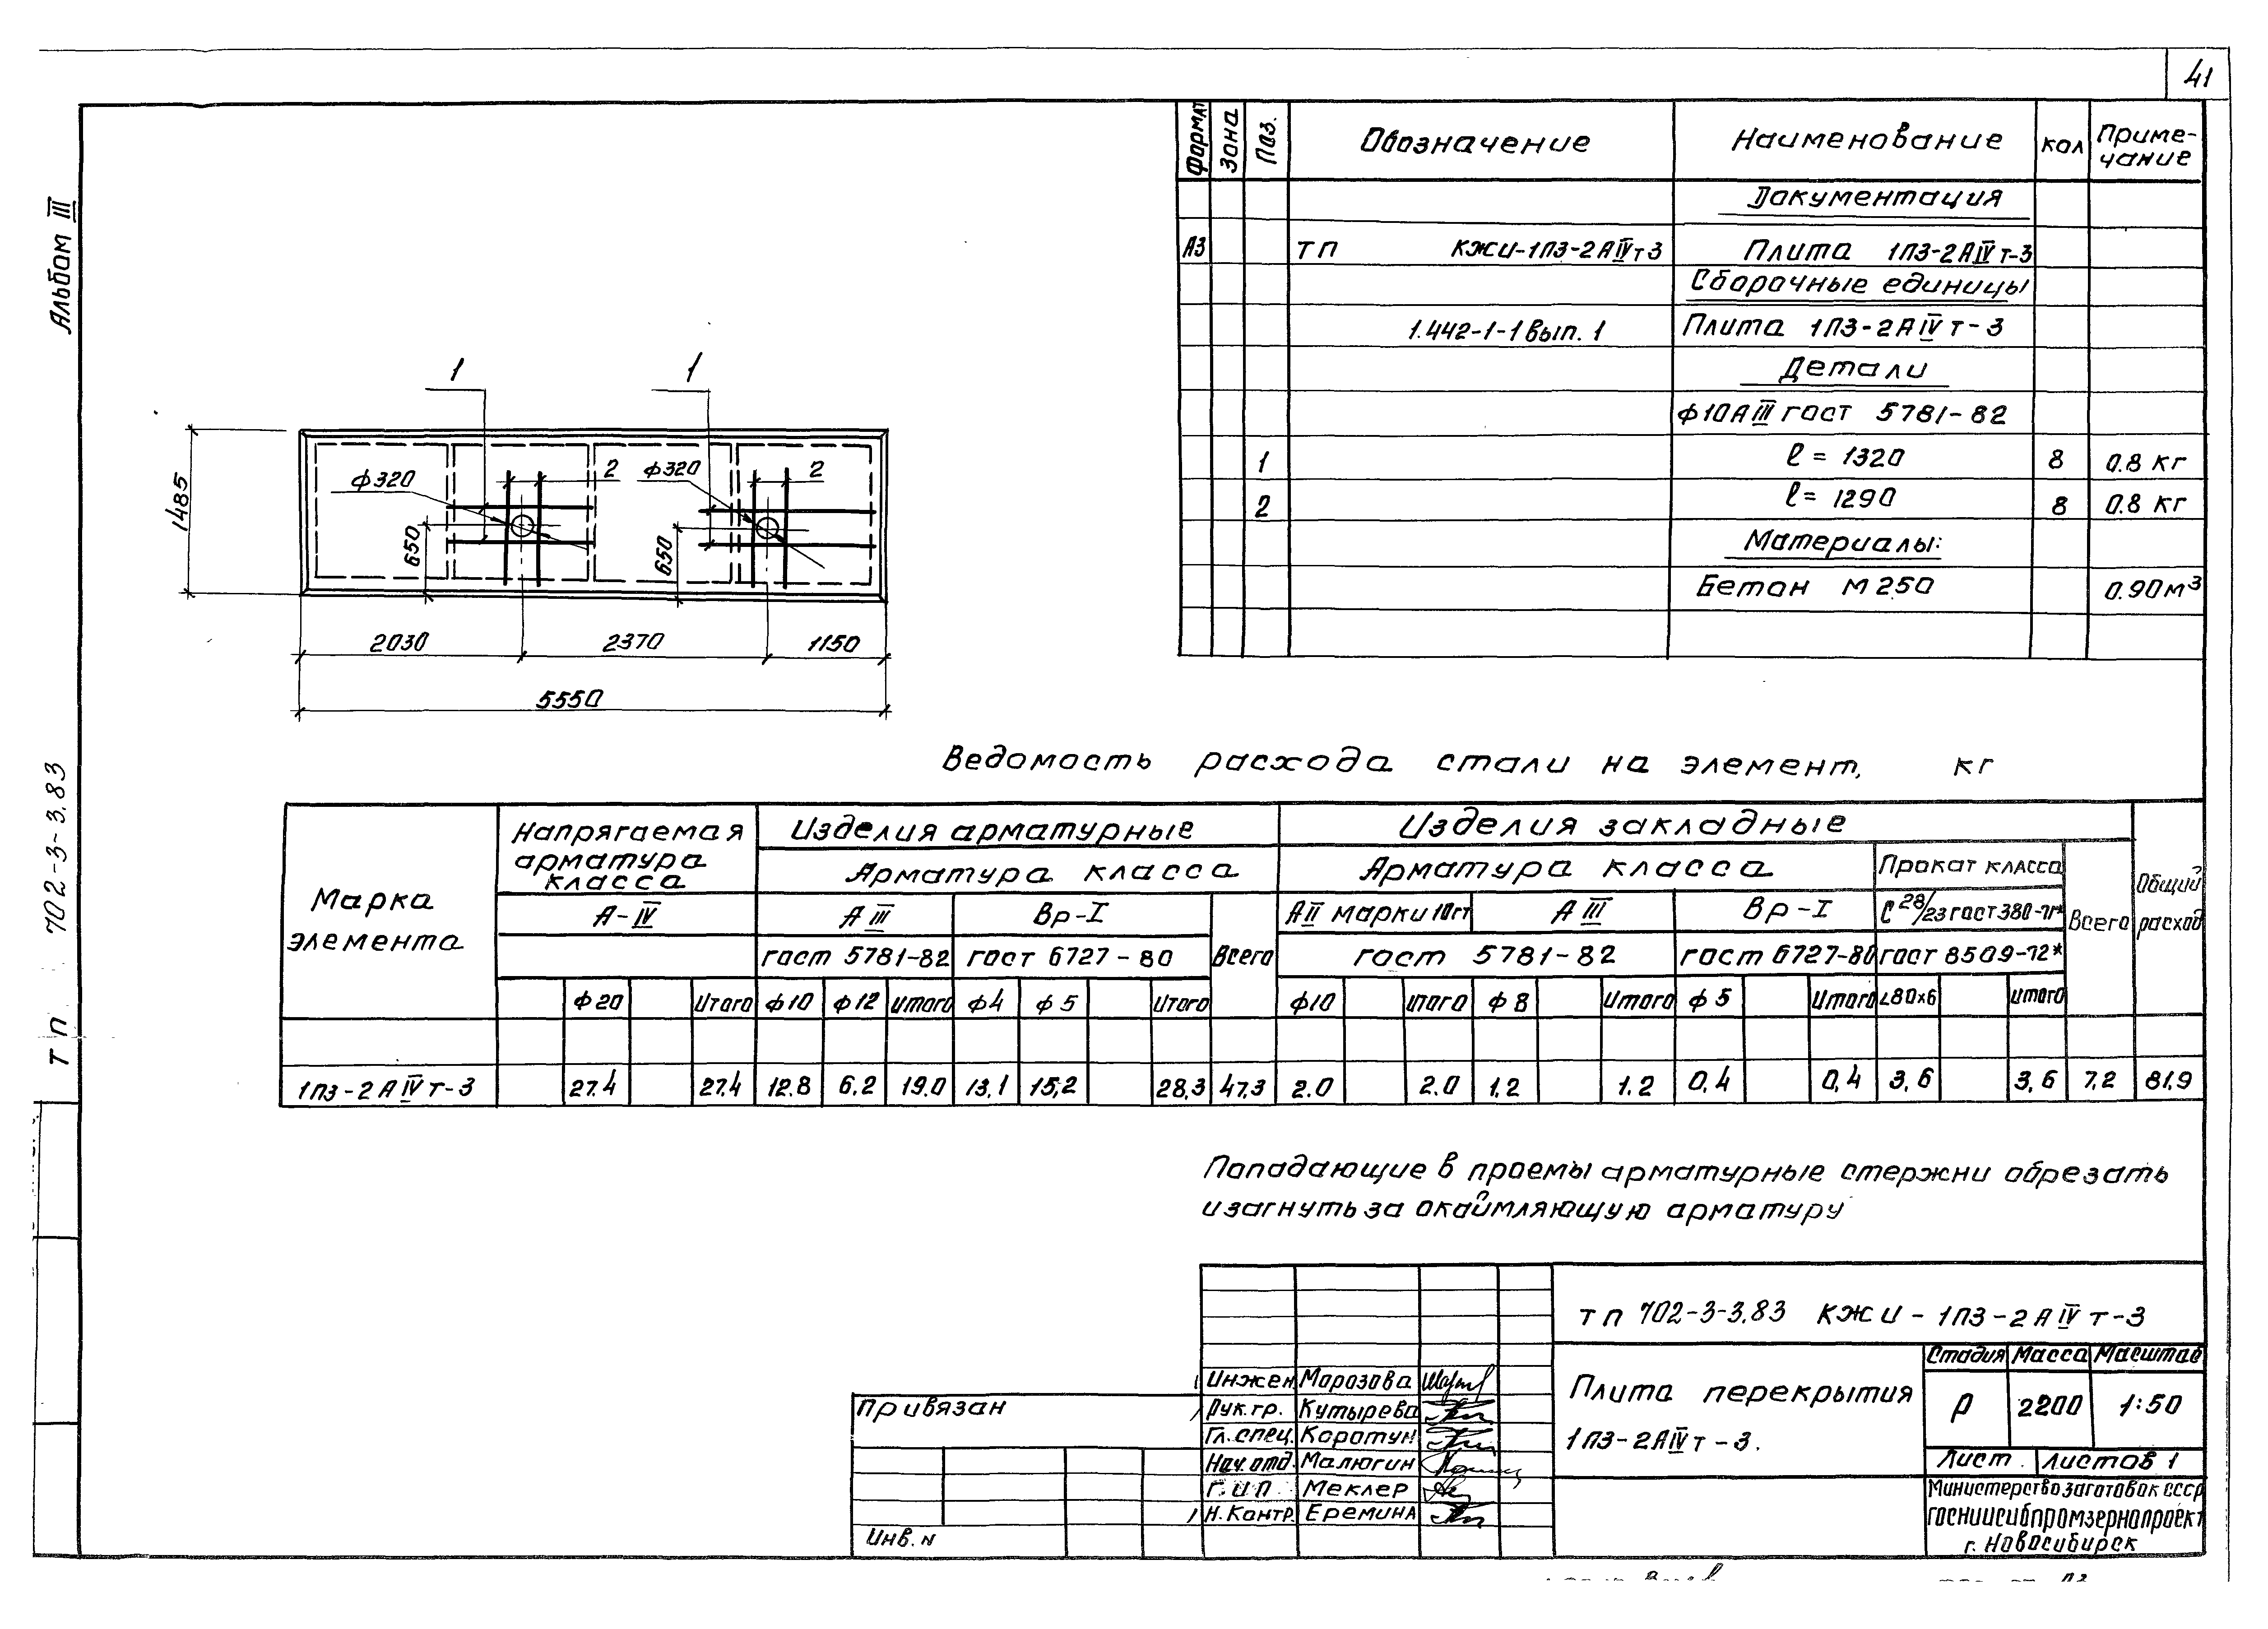 41
Альбом III
ТП 702-3-3.83
Формат Зона Поз. Обозначение Наименование Кол Приме-
чание
Документация
А3 ТП КЖИ-1П3-2АIVт3 Плита 1П3-2АIVт-3
Сборочные единицы
1.442-1-1 вып. 1 Плита 1П3-2АIVт-3
Детали
ф10АIII гост 5781-82
1 ℓ = 1320 8 0.8 кг
2 ℓ = 1290 8 0.8 кг
Материалы:
Бетон М250 0.90м³
1 1
ф320 2 ф320 2
1485 650 650
2030 2370 1150
5550
Ведомость расхода стали на элемент, кг
Марка
элемента
Напрягаемая
арматура
класса
Изделия арматурные
Изделия закладные
Общий
расход
Арматура класса
Арматура класса
Прокат класса
Всего
А-IV АIII Вр-I Всего АII марки 10гт АIII Вр-I С28/23 гост 380-71*
гост 5781-82 гост 6727-80 гост 5781-82 гост 6727-80 гост 8509-72*
ф20 Итого ф10 ф12 Итого ф4 ф5 Итого ф10 Итого ф8 Итого ф5 Итого L80х6 Итого
1П3-2АIVт-3 27.4 27.4 12.8 6.2 19.0 13,1 15,2 28,3 47,3 2.0 2.0 1,2 1.2 0,4 0,4 3,6 3,6 7,2 81,9
Попадающие в проемы арматурные стержни обрезать
изагнуть за окаймляющую арматуру
тп 702-3-3.83 КЖИ-1П3-2АIVт-3
Плита перекрытия
1П3-2АIVт-3.
Стадия Масса Масштаб
Р 2200 1:50
Лист. Листов 1
Министерство заготовок СССР
ГОСНИИСИБПРОМЗЕРНОПРОЕКТ
г. Новосибирск
Инжен Морозова
Рук.гр. Кутырева
Гл. спец. Коротун
Нач. отд. Малюгин
Г.И.П Меклер
Н. Контр. Еремина
Привязан
Инв. N